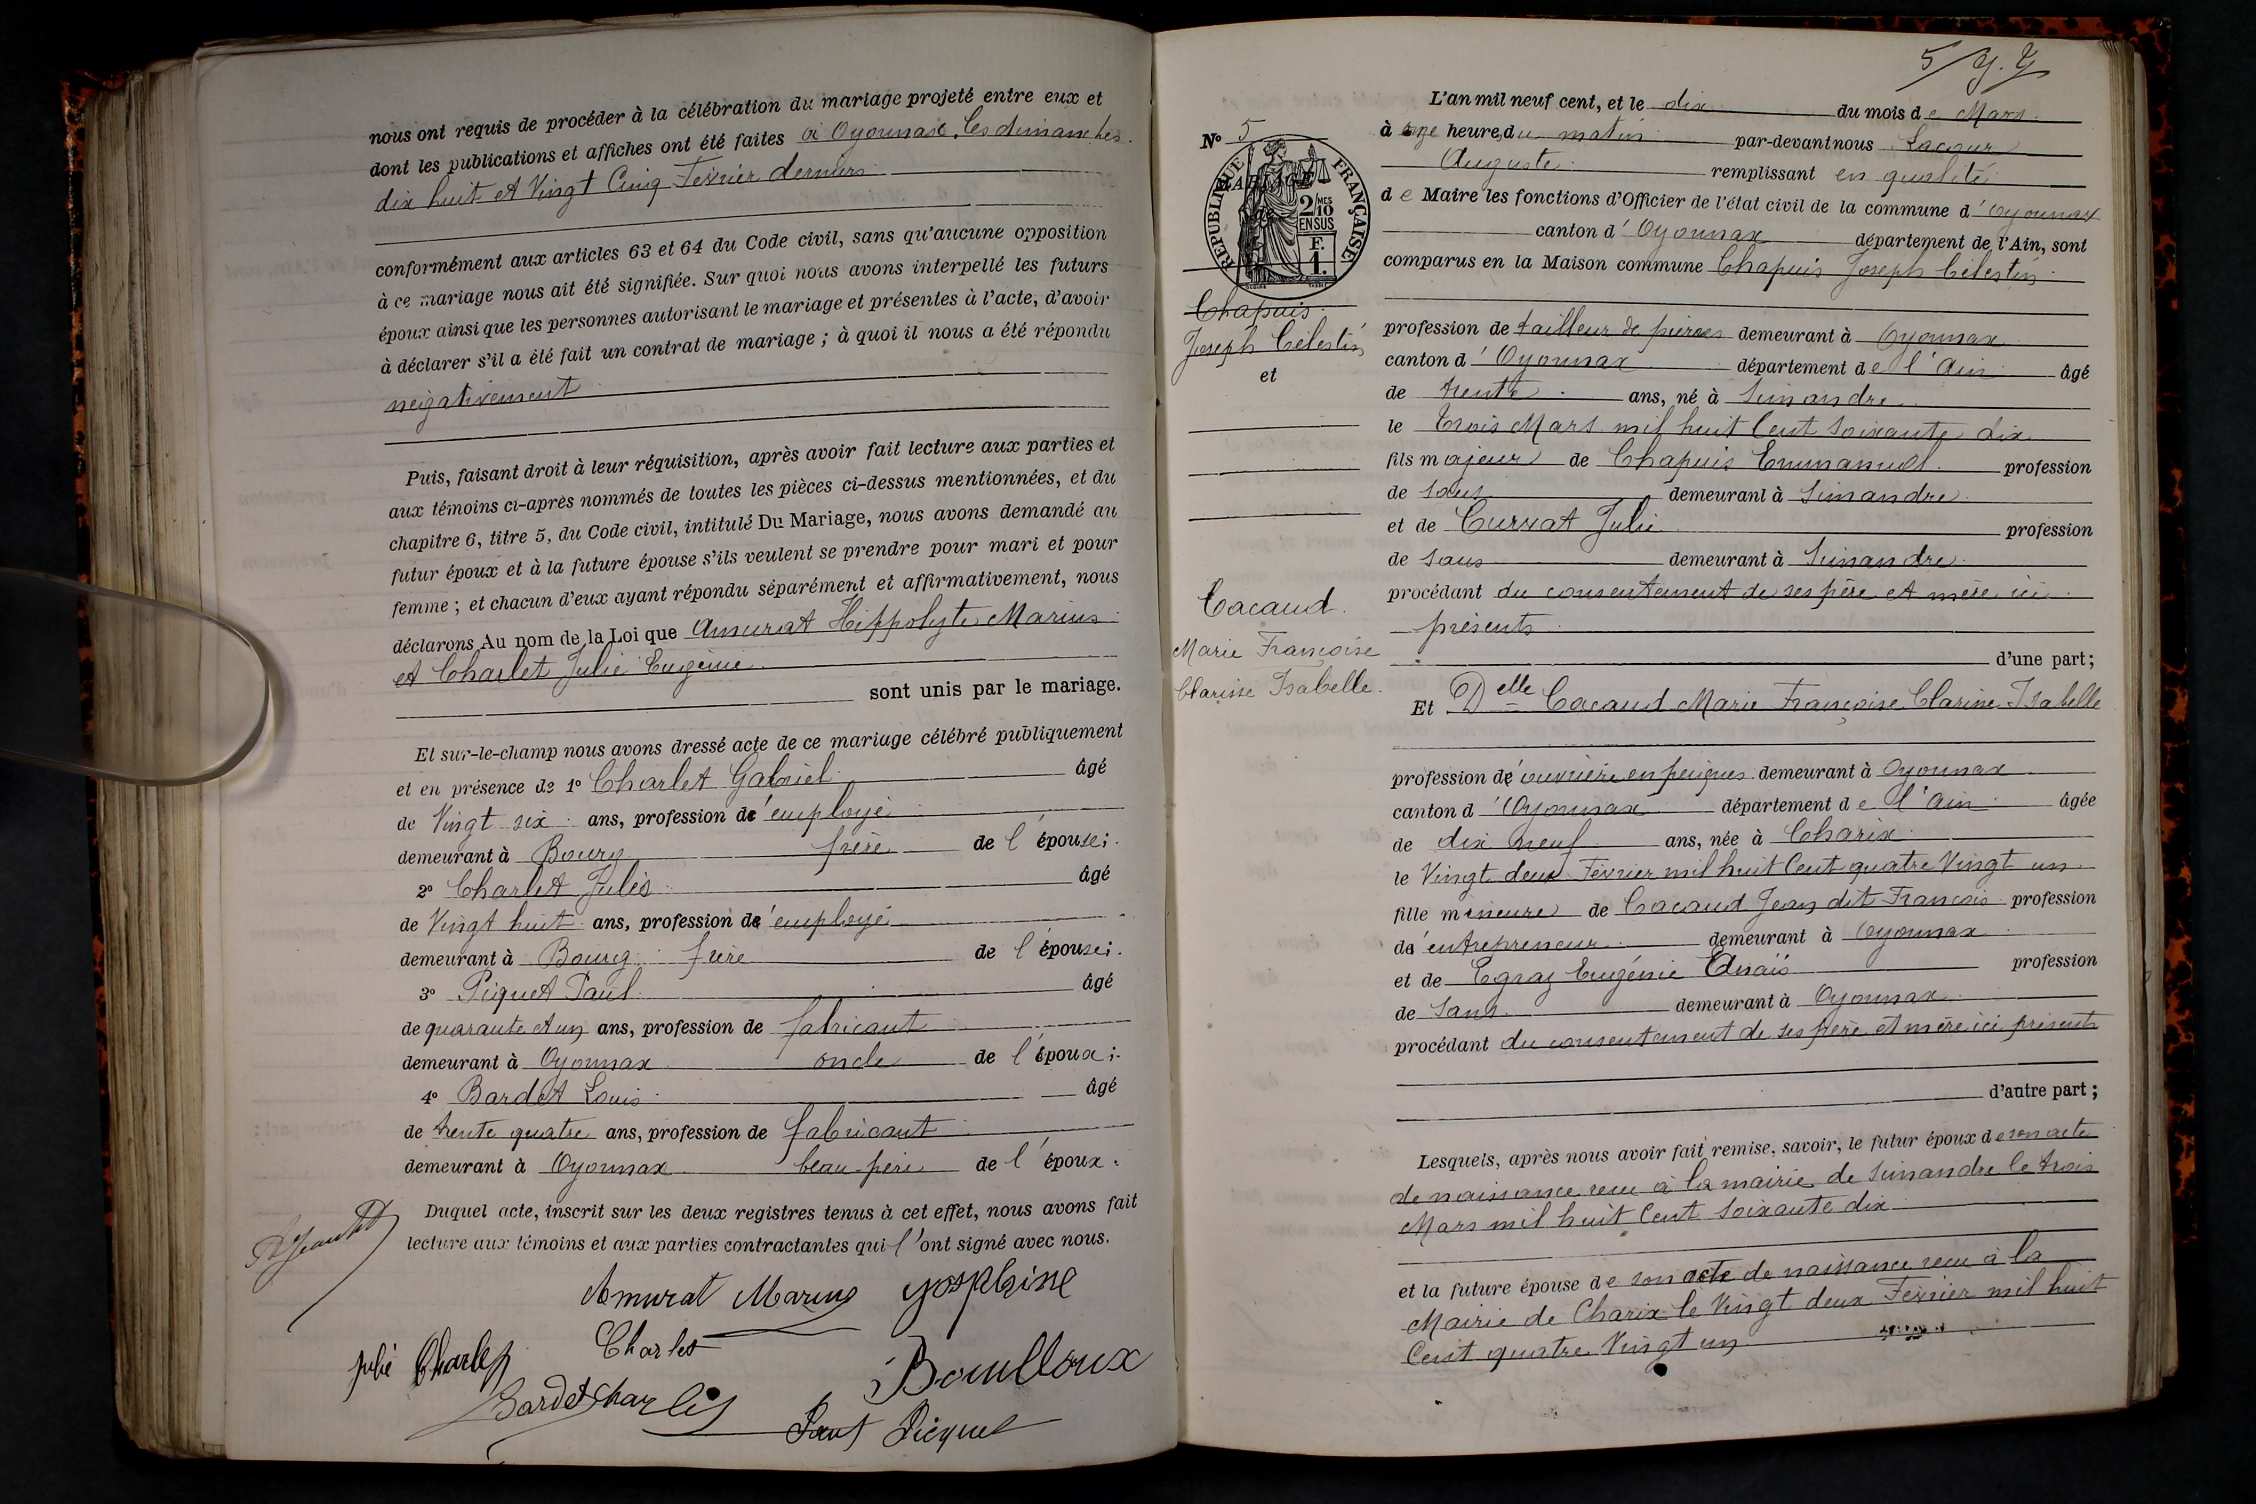 nous ont requis de procéder à la célébration du mariage projeté entre eux et
dont les publications et affiches ont été faites à Oyonnax, les dimanches
dix huit et Vingt Cinq Février derniers
conformément aux articles 63 et 64 du Code civil, sans qu'aucune opposition
à ce mariage nous ait été signifiée. Sur quoi nous avons interpellé les futurs
époux ainsi que les personnes autorisant le mariage et présentes à l'acte, d'avoir
à déclarer s'il a été fait un contrat de mariage ; à quoi il nous a été répondu
négativement
Puis, faisant droit à leur réquisition, après avoir fait lecture aux parties et
aux témoins ci-après nommés de toutes les pièces ci-dessus mentionnées, et du
chapitre 6, titre 5, du Code civil, intitulé Du Mariage, nous avons demandé au
futur époux et à la future épouse s'ils veulent se prendre pour mari et pour
femme ; et chacun d'eux ayant répondu séparément et affirmativement, nous
déclarons Au nom de la Loi que Amurat Hippolyte Marius
et Charlet Julie Eugénie
sont unis par le mariage.
Et sur-le-champ nous avons dressé acte de ce mariage célébré publiquement
et en présence de 1° Charlet Gabriel âgé
de Vingt six ans, profession d'employé
demeurant à Bourg frère de l'épouse ;
2° Charlet Jules âgé
de Vingt huit ans, profession d'employé
demeurant à Bourg frère de l'épouse ;
3° Piquet Paul âgé
de quarante et un ans, profession de fabricant
demeurant à Oyonnax oncle de l'époux ;
4° Bardet Louis âgé
de trente quatre ans, profession de fabricant
demeurant à Oyonnax beau-père de l'époux.
Duquel acte, inscrit sur les deux registres tenus à cet effet, nous avons fait
lecture aux témoins et aux parties contractantes qui l'ont signé avec nous.
Amurat Marius Josephine
Julie Charlet Charlet Bouilloux
Bardet Charles
Paul Picquet
5
L'an mil neuf cent, et le dix du mois de Mars
N° 5
à onze heures du matin par-devant nous Lacour
Auguste remplissant en qualité
de Maire les fonctions d'Officier de l'état civil de la commune d'Oyonnax
canton d'Oyonnax département de l'Ain, sont
comparus en la Maison commune Chapuis Joseph Célestin
RÉPUBLIQUE FRANÇAISE
2/10 MES
EN SUS
F.
1.
Chapuis
Joseph Célestin
et
Cacaud
Marie Françoise
Clarisse Isabelle
profession de tailleur de pierres demeurant à Oyonnax
canton d'Oyonnax département de l'Ain âgé
de trente ans, né à Simandre
le trois Mars mil huit Cent soixante dix
fils majeur de Chapuis Emmanuel profession
de sans demeurant à Simandre
et de Curvat Julie profession
de sans demeurant à Simandre
procédant du consentement de ses père et mère ici
présents
d'une part ;
Et Delle Cacaud Marie Françoise Clarisse Isabelle
profession d'ouvrière en peignes demeurant à Oyonnax
canton d'Oyonnax département de l'Ain âgée
de dix neuf ans, née à Charix
le Vingt deux Février mil huit Cent quatre Vingt un
fille mineure de Cacaud Jean dit François profession
d'entrepreneur demeurant à Oyonnax
et de Egraz Eugénie Anaïs profession
de sans demeurant à Oyonnax
procédant du consentement de ses père et mère ici présents
d'autre part ;
Lesquels, après nous avoir fait remise, savoir, le futur époux de son acte
de naissance reçu à la mairie de Simandre le trois
Mars mil huit Cent soixante dix
et la future épouse de son acte de naissance reçu à la
Mairie de Charix le Vingt deux Février mil huit
Cent quatre Vingt un